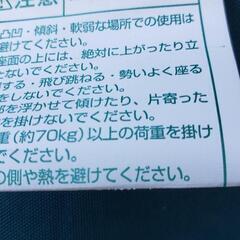 注意
凸凹・傾斜・軟弱な場所での使用は
避けてください。
座面の上には、絶対に上がったり立
でください。
する・飛び跳ねる・勢いよく座る
しないでください。
部を浮かせて傾けたり、片寄った
を掛けないでください。
重(約70kg)以上の荷重を掛け
でください。
の側や熱を避けてください。